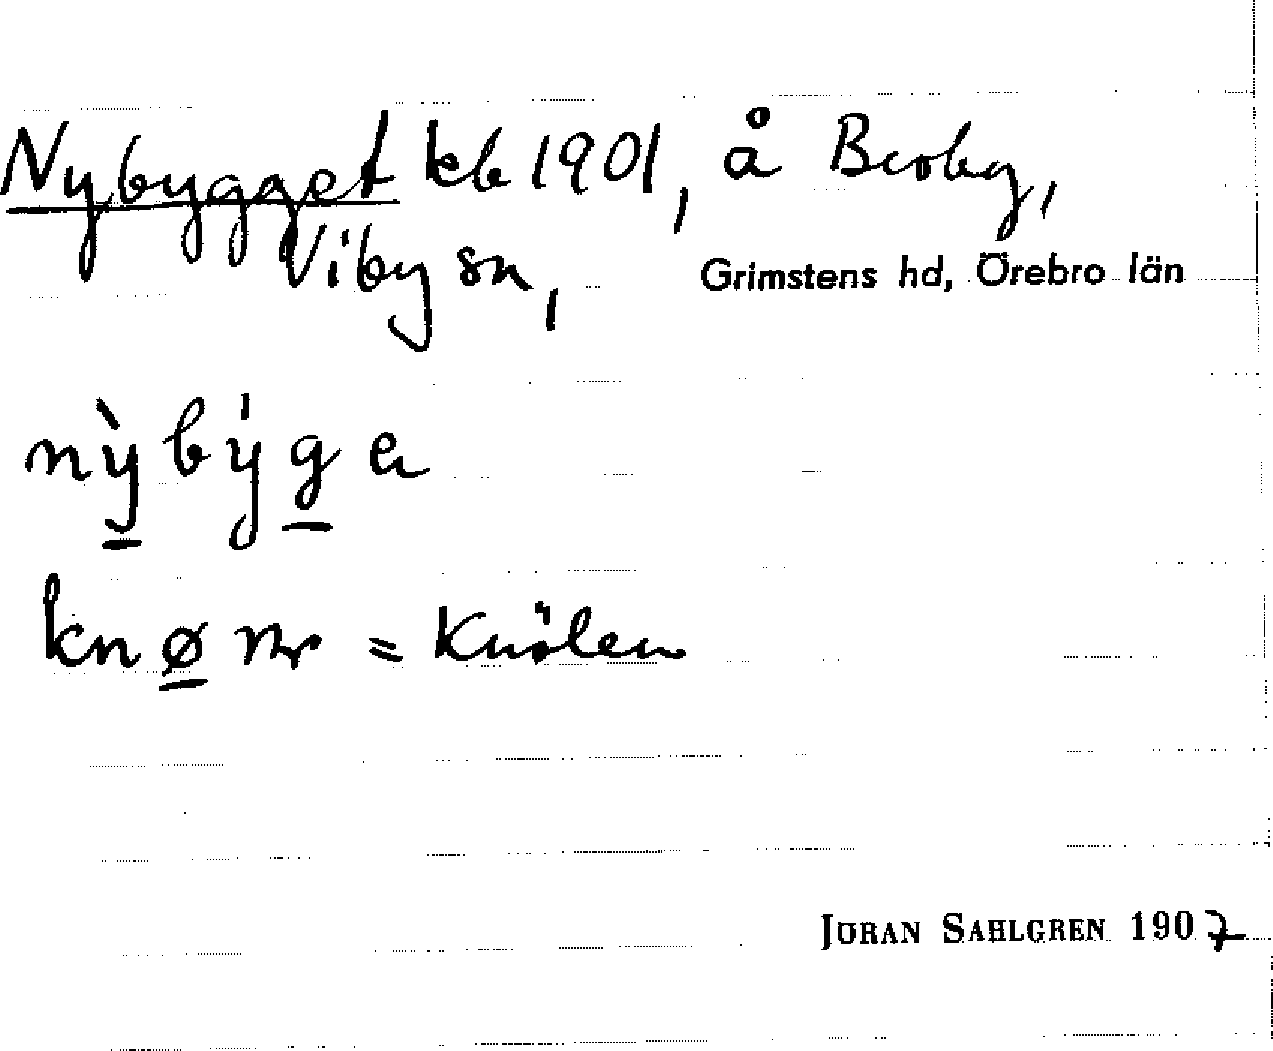 Nybygget kb 1901, å Broby,
Viby sn, Grimstens hd, Örebro län
nỳbýge
= Knölen
JÖRAN SAHLGREN 1907